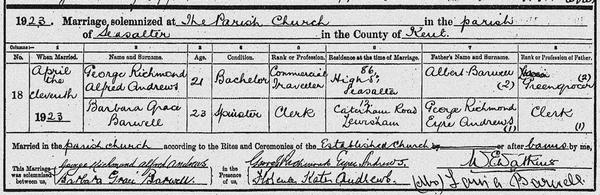 1923. Marriage solemnized at The Parish Church in the parish
of Seasalter in the County of Kent.
Columns:— 1 2 3 4 5 6 7 8
No. When Married. Name and Surname. Age. Condition. Rank or Profession. Residence at the time of Marriage. Father's Name and Surname. Rank or Profession of Father.
18 April the eleventh 1923
George Richmond Alfred Andrews 21 Bachelor Commercial Traveller 86, High St. Seasalter Albert Barwell (2) Greengrocer (2)
Barbara Grace Barwell 23 Spinster Clerk Caterham Road Lewisham George Richmond Eyre Andrews (1) Clerk (1)
Married in the parish church according to the Rites and Ceremonies of the Established Church after banns by me,
This Marriage was solemnized between us, George Richmond Alfred Andrews
Barbara Grace Barwell
in the Presence of us, George Richmond Eyre Andrews
Florence Kate Andrews
W E Watkins
Louisa Barwell